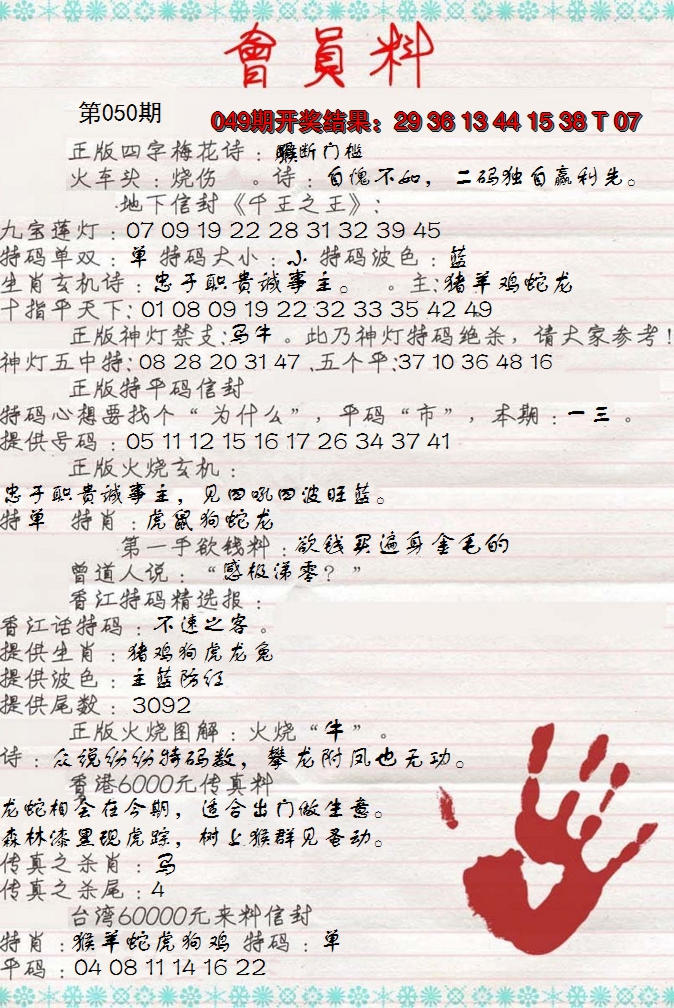 會員料
第050期
049期开奖结果：29 36 13 44 15 38 T 07
正版四字梅花诗：猴断门槛
火车头：烧伤 。诗：自愧不如，二码独自赢利先。
地下信封《千王之王》：
九宝莲灯：07 09 19 22 28 31 32 39 45
特码单双：单 特码大小：小 特码波色：蓝
生肖玄机诗：忠于职责诚事主。 。主：猪羊鸡蛇龙
十指平天下：01 08 09 19 22 32 33 35 42 49
正版神灯禁支：马牛。此乃神灯特码绝杀，请大家参考！
神灯五中特：08 28 20 31 47 .五个平：37 10 36 48 16
正版特平码信封
特码心想要找个“为什么”，平码“市”，本期：一三。
提供号码：05 11 12 15 16 17 26 34 37 41
正版火烧玄机：
忠于职责诚事主，见四吼四波旺蓝。
特单 特肖：虎鼠狗蛇龙
第一手欲钱料：欲钱买遍身金毛的
曾道人说：“感极涕零？”
香江特码精选报：
香江话特码：不速之客。
提供生肖：猪鸡狗虎龙兔
提供波色：主蓝防红
提供尾数：3092
正版火烧图解：火烧“牛”。
诗：众说纷纷特码数，攀龙附凤也无功。
香港6000元传真料
龙蛇相会在今期，适合出门做生意。
森林漆黑现虎踪，树上猴群见蚤动。
传真之杀肖：马
传真之杀尾：4
台湾60000元来料信封
特肖：猴羊蛇虎狗鸡 特码：单
平码：04 08 11 14 16 22